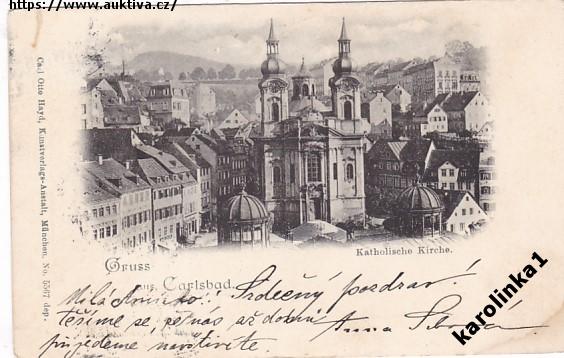 https://www.auktiva.cz/
Carl Otto Hayd, Kunstverlags-Anstalt, München. No. 5567 dep.
Katholische Kirche.
Gruss
aus Carlsbad.
Milá Srdečný pozdrav!
Těšíme se, že nás až domů Anna
přijedeme navštívíte.
karolinka1